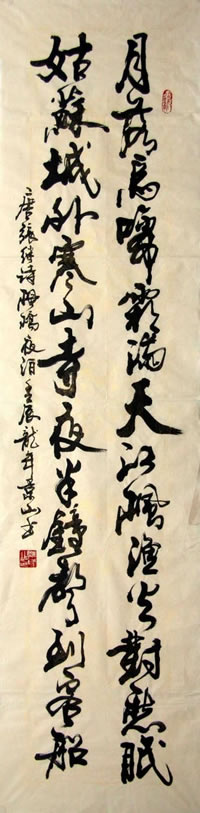 月落烏啼霜滿天江楓漁火對愁眠
姑蘇城外寒山寺夜半鐘聲到客船
唐張继詩楓橋夜泊壬辰龍年山书